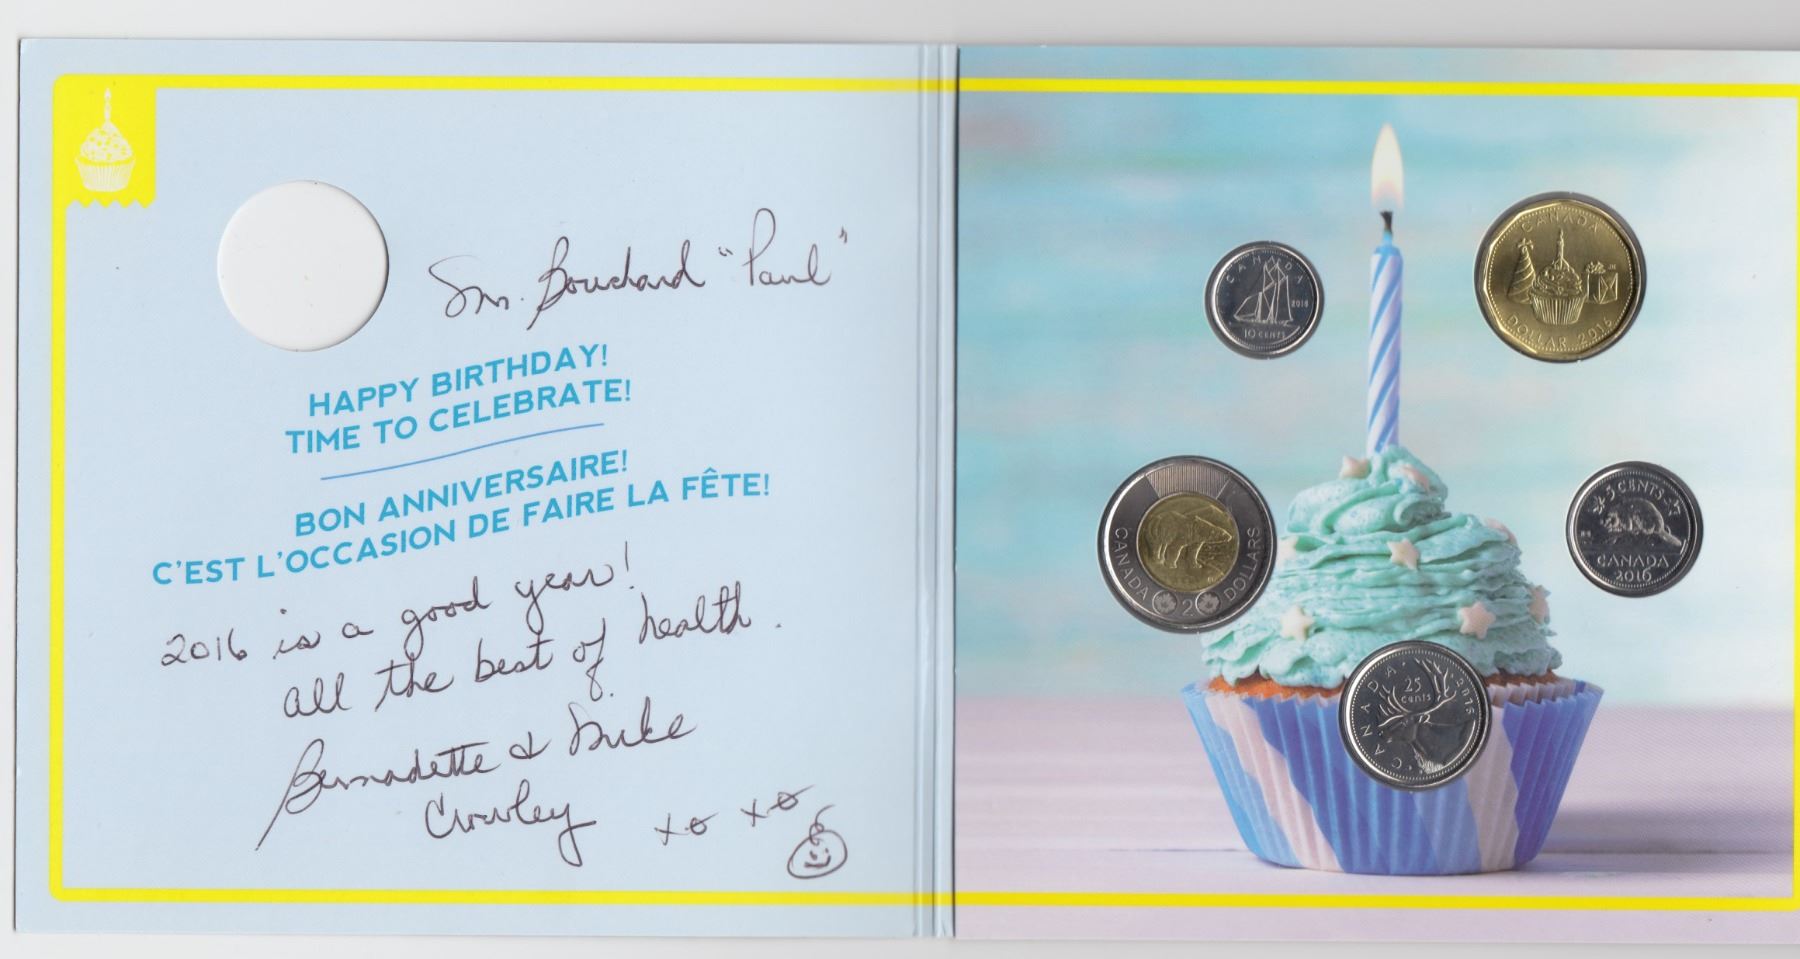 Sm. Bouchard "Paul"
HAPPY BIRTHDAY!
TIME TO CELEBRATE!
BON ANNIVERSAIRE!
C'EST L'OCCASION DE FAIRE LA FÊTE!
2016 is a good year!
all the best of health.
Bernadette & Mike
Crowley
xo xo
CANADA
2016
10 CENTS
CANADA
DOLLAR 2016
CANADA 2 DOLLARS
5 CENTS
CANADA
2016
CANADA 2016
25
cents